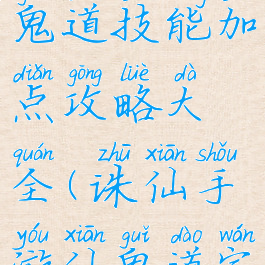 鬼道技能加
diǎn gōng lüè dà
点攻略大
quán zhū xiān shǒu
全(诛仙手
yóu xiān guǐ dào wán
游仙鬼道完